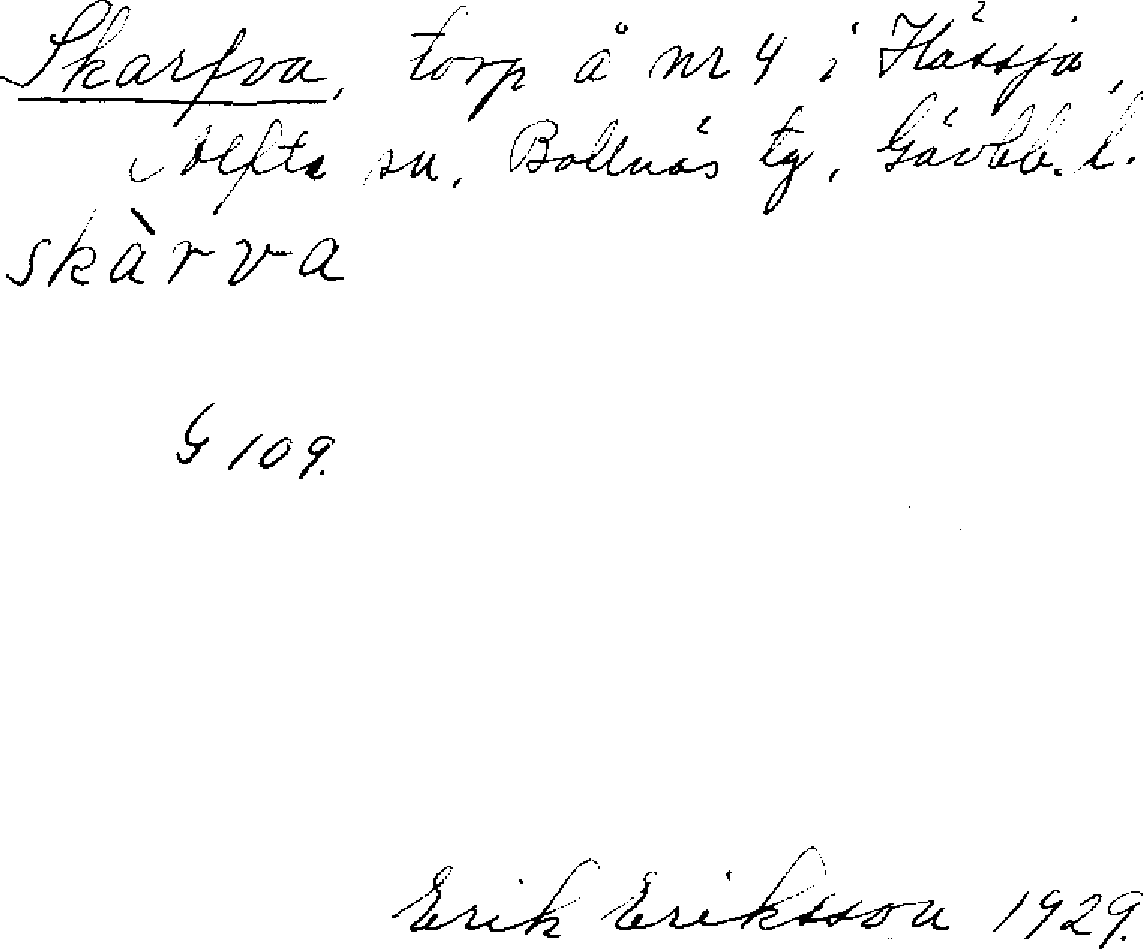 Skarfva, torp å nr 4 i Hässja,
Alfta sn, Bollnäs tg, Gävleb. l.
skàrva
G 109.
Erik Eriksson 1929.